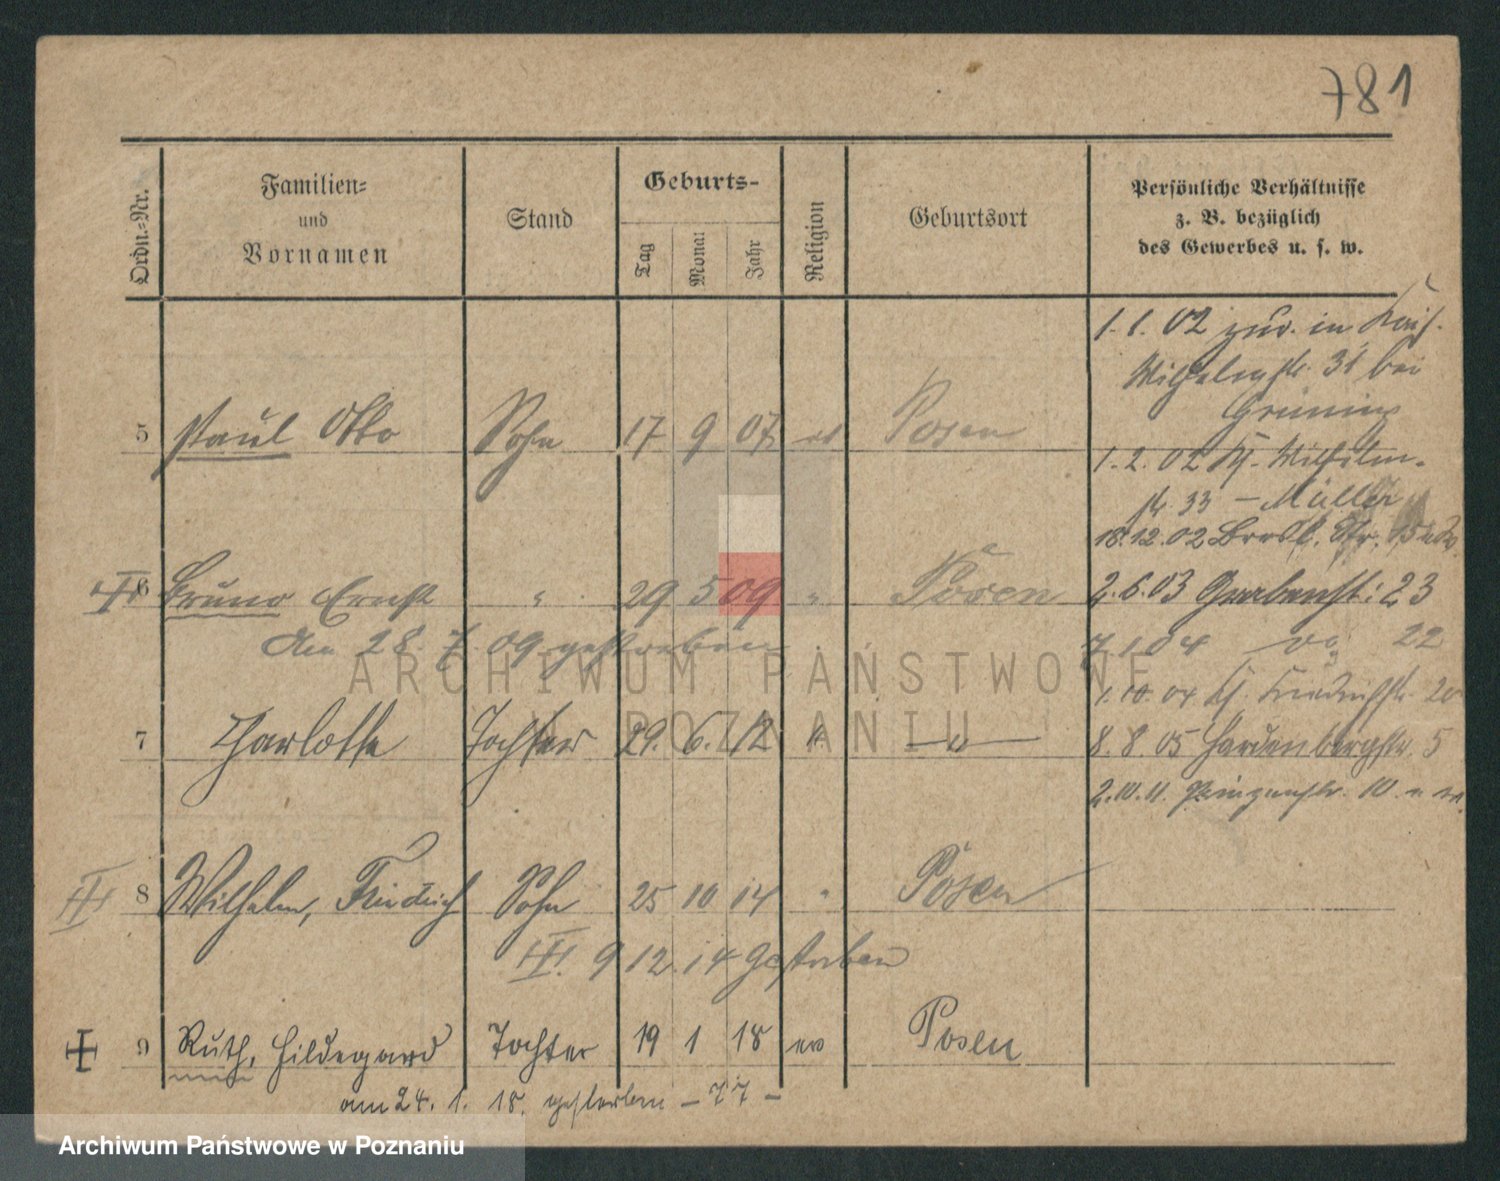 781
Ordn.-Nr.
Familien-
und
Vornamen
Stand
Geburts-
Tag
Monat
Jahr
Religion
Geburtsort
Persönliche Verhältnisse
z. B. bezüglich
des Gewerbes u. s. w.
1.1.02 zur. in Kais.
Wilhelmstr. 31 bei
Grüning
5 Paul Otto Sohn 17 9 07 Posen
1.2.02 Wilhelm-
str. 33 – Müller
18.12.02 Str. 15
6 Bruno Ernst " 29 5 09 " Posen
2.6.03 Grabenstr. 23
den 28. 7. 09 gestorben
7.1.04 22
1.10.04 Friedrichstr. 20
7 Charlotte Tochter 29. 6. 12 " — " —
8.8.05 Hardenbergstr. 5
2.10.11. Prinzenstr. 10
8 Wilhelm, Friedrich Sohn 25 10 14 " Posen
III. 9 12. 14 gestorben
9 Ruth, Hildegard Tochter 19 1 18 ev Posen
am 24. 1. 18. gestorben – 77 –
ARCHIWUM PAŃSTWOWE
W POZNANIU
Archiwum Państwowe w Poznaniu